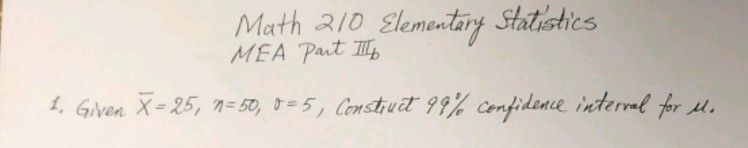 Math 210 Elementary Statistics
MEA Part IIIb
1. Given X̅ = 25, n=50, σ=5, Construct 99% confidence interval for μ.